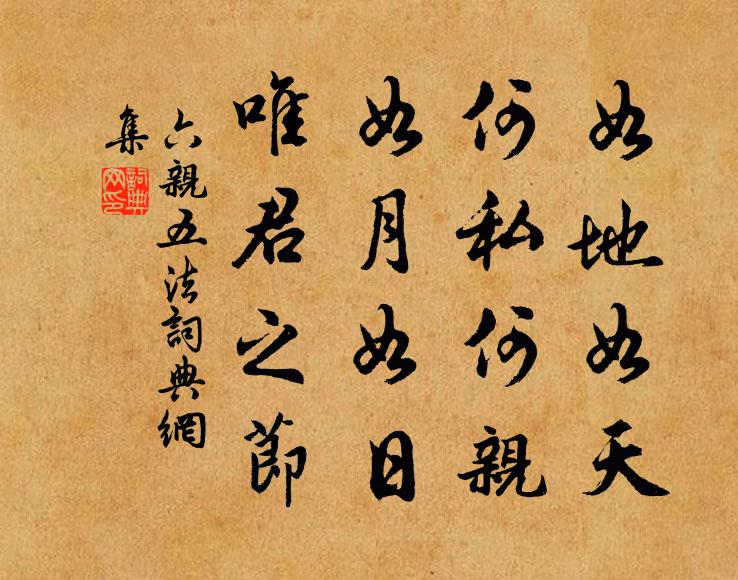 如地如天
何私何親
如月如日
唯君之節
六親五法詞典網
集
詞典網印